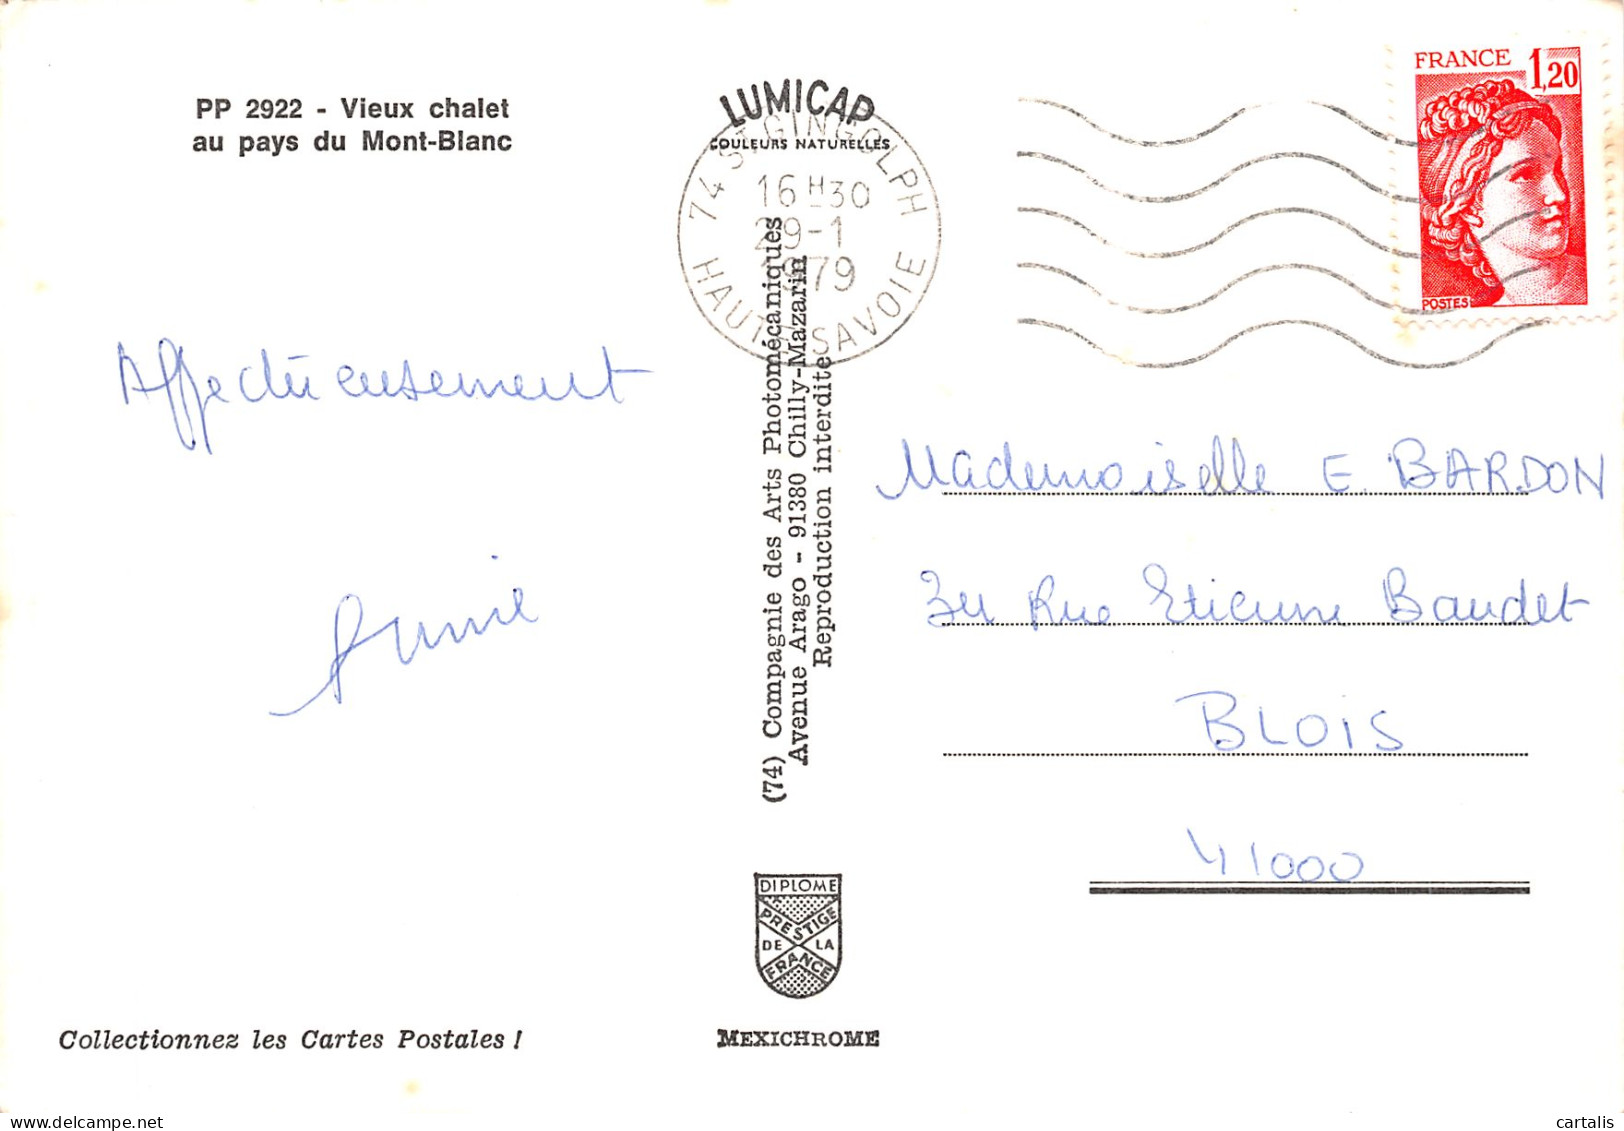 PP 2922 - Vieux chalet
au pays du Mont-Blanc
LUMICAP
COULEURS NATURELLES
74 ST GINGOLPH
16 H 30
29-1
1979
HAUTE SAVOIE
FRANCE 1,20
POSTES
Affectueusement
Annie
(74) Compagnie des Arts Photomécaniques
Avenue Arago - 91380 Chilly-Mazarin
Reproduction interdite
Mademoiselle E. BARDON
Rue Etienne Baudet
BLOIS
41000
DIPLOME
PRESTIGE
DE LA
FRANCE
Collectionnez les Cartes Postales !
MEXICHROME
cartalis - delcampe.net